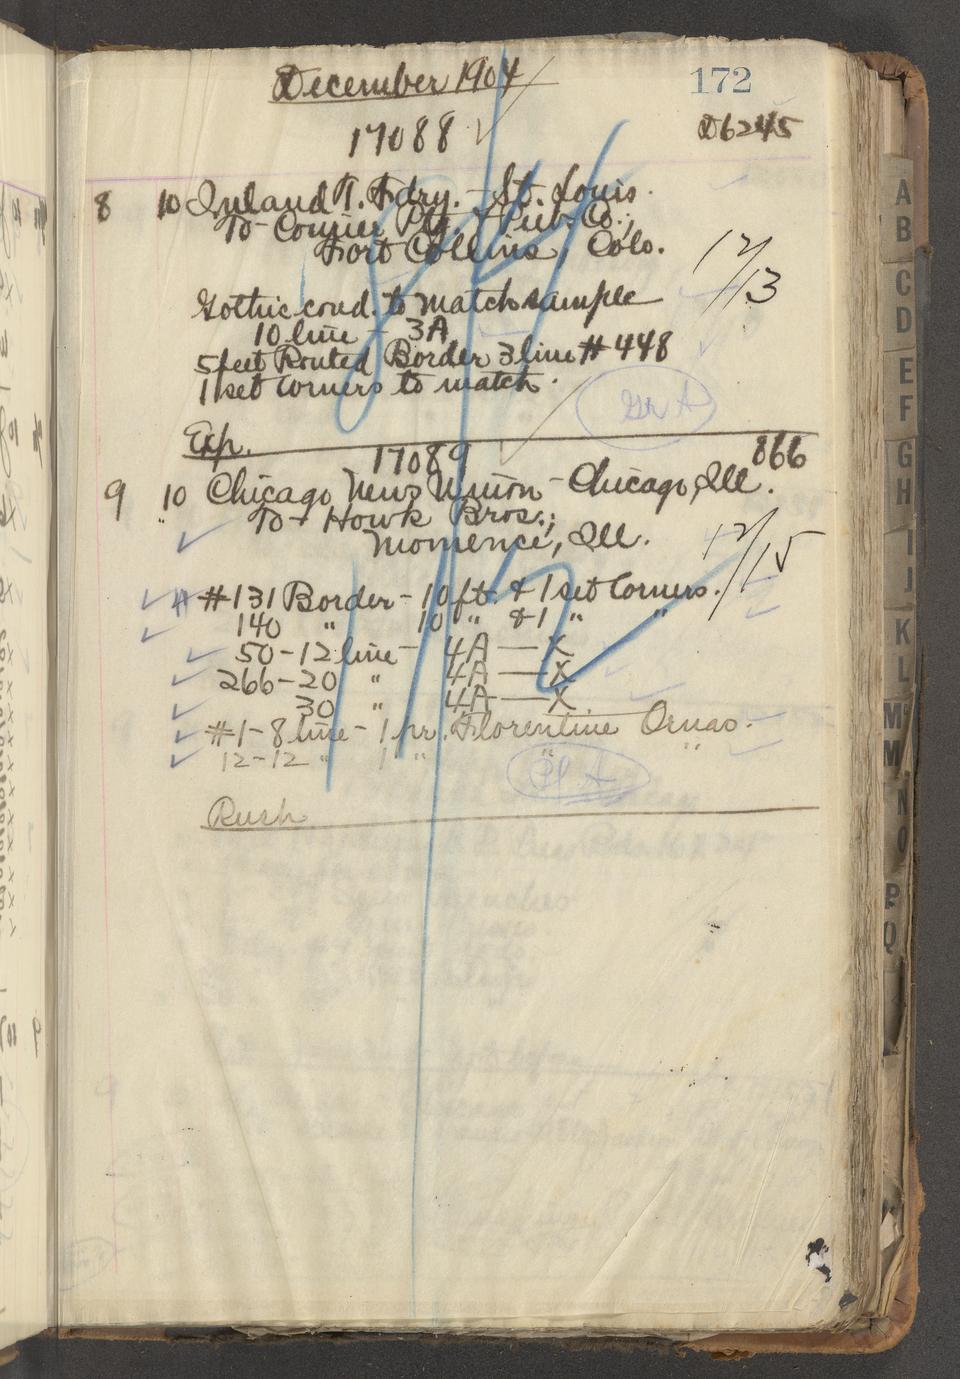 December 1904
172
17088
D6245
8 10 Inland T. Fdry. - St. Louis.
To- Courier Ptg. & Pub. Co.,
Fort Collins, Colo.
12/13
Gothic cond. to match sample
10 line - 3A
5 feet Routed Border 3 line #448
1 set Corners to match.
Gr A
Exp.
17089
866
9 10 Chicago News Union - Chicago, Ill.
" To- Howk Bros.;
Momence, Ill.
12/15
#131 Border - 10 ft. & 1 set Corners.
140 " 10 " & 1 " "
50-12 line - 4A — X
266-20 " 4A — X
30 " 4A — X
#1-8 line - 1 pr. Florentine Ornas.
12-12 " 1 " " "
Pl A
Rush
A
B
C
D
E
F
G
H
I
J
K
L
M
M
N
O
P
Q